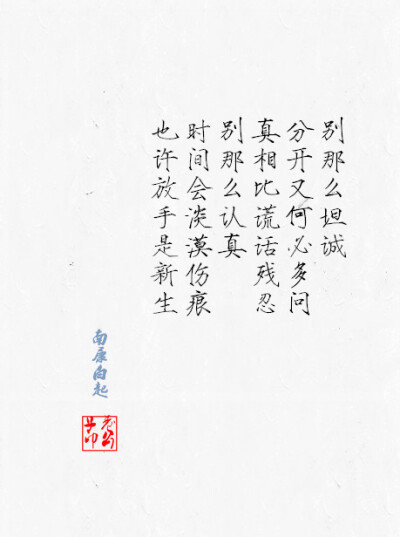 别那么坦诚
分开又何必多问
真相比谎话残忍
别那么认真
时间会淡漠伤痕
也许放手是新生
南康白起